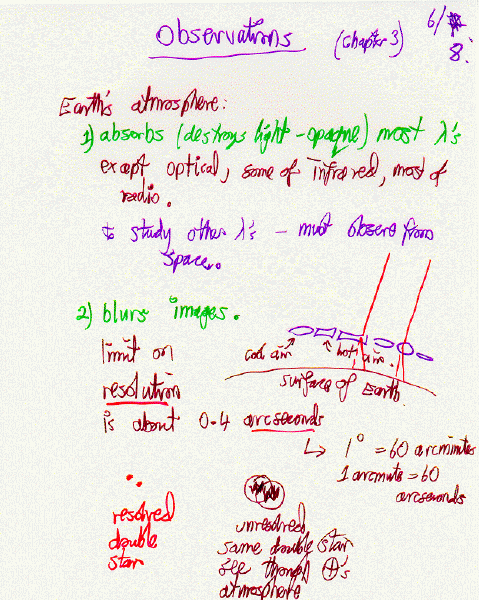 Observations (Chapter 3) 6/8
Earth's atmosphere:
1) absorbs (destroys light - opaque) most λ's
except optical, some of infrared, most of
radio.
to study other λ's - must observe from
space.
2) blurs images.
limit on
resolution
is about 0.4 arcseconds
cool air
hot air.
surface of Earth.
↳ 1° = 60 arcminutes
1 arcmute = 60
arcseconds
resolved
double
star
unresolved
same double star
see through ⊕'s
atmosphere